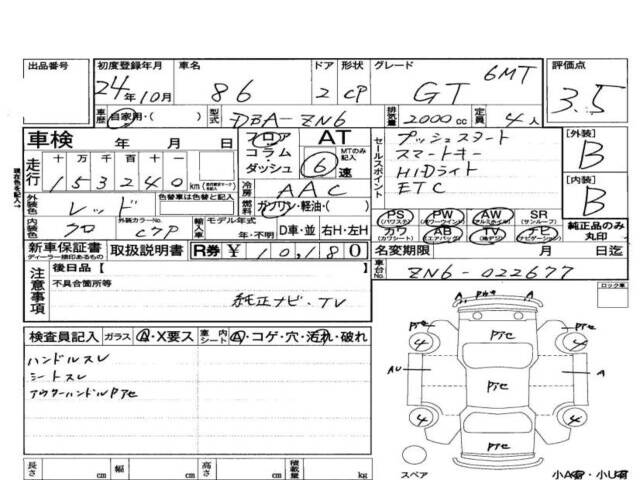 出品番号 初度登録年月 車名 ドア 形状 グレード 評価点
24年10月 86 2 CP GT 6MT 3.5
車歴 自家用・( ) 型式 DBA-ZN6 排気量 2000cc 定員 4人
車検 年 月 日 フロア AT
コラム MTのみ記入
ダッシュ 6 速
走行 十 万 千 百 十 一
153240 km
現在色を記入→
冷房 AAC
外装色 レッド 色替車は色替と記入 燃料 ガソリン・軽油・( )
内装色 クロ 外装カラーNo. C7P 輸入車 モデル年式
年・不明 D車・並 右H・左H
セールスポイント
プッシュスタート
スマートキー
HIDライト
ETC
[外装]
B
[内装]
B
PS (パワステ) PW (パワーウインド) AW (アルミホイル) SR (サンルーフ) 純正品のみ丸印
カワ (カワシート) AB (エアバッグ) TV (地デジ) ナビ (ナビゲーション)
新車保証書 ディーラー様印あるもの 取扱説明書 R券 ¥ 10,180
名変期限 月 日迄
車台No. ZN6-022677
注意事項 後日品【
不具合箇所等
純正ナビ・TV
ロック車
検査員記入 ガラス A・X要ス 室内シート A・コゲ・穴・汚れ・破れ
ハンドルスレ
シートスレ
アウターハンドルPTC
A A
PTC PTC
4 4
AU PTC A
4 4
PTC
スペア
長さ cm 幅 cm 高さ cm 積載量 kg
小A有・小U有